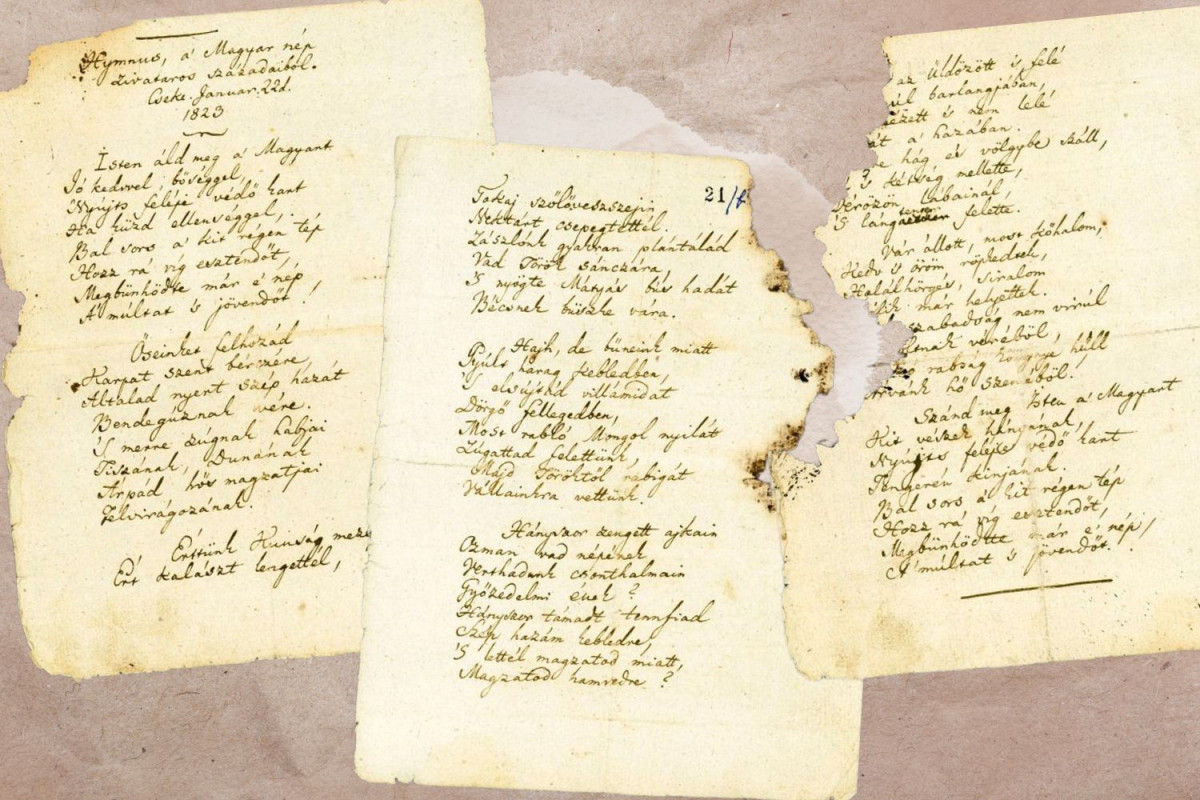 Hymnus, a' Magyar nép
zivataros századaiból.
Cseke. Januar. 22d.
1823
Isten áld meg a' Magyart
Jó kedvvel, bőséggel,
Nyújts feléje védő kart
Ha küzd ellenséggel,
Bal sors a' kit régen tép
Hozz rá víg esztendőt,
Megbűnhödte már é nép
A' múltat 's jövendőt!
Őseinket felhozád
Kárpát szent bérczére,
Általad nyert szép hazát
Bendegúznak vére.
'S merre zúgnak habjai
Tiszának, Dunának
Árpád hős magzatjai
Felvirágozának.
Értünk Kunság mezein
Ért kalászt lengettél,
21/b
Tokaj szőlővesszejin
Nektárt csepegtettél.
Zászlónk gyakran plántálád
Vad Török sánczára,
'S nyögte Mátyás bús hadát
Bécsnek büszke vára.
Hajh, de bűneink miatt
Gyúlt harag kebledben,
'S elsújtád villámidat
Dörgő fellegedben,
Most rabló Mongol nyilát
Zúgattad felettünk,
Majd Töröktől rabigát
Vállainkra vettünk.
Hányszor zengett ajkain
Ozman vad népének
Vert hadunk csonthalmain
Győzedelmi ének?
Hányszor támadt tennfiad
Szép hazám kebledre,
'S lettél magzatod miatt,
Magzatod hamvedre?
az üldözött 's felé
barlangjában,
is nem lelé
a' hazában.
hág és völgybe száll,
'S kétség mellette,
Vérözön lábainál,
'S lángtenger felette.
Vár állott, most kőhalom,
Kedv 's öröm röpkedtek,
Halálhörgés, siralom
már helyettek.
szabadság nem virúl
véréből,
rabság könnye hull
hő szeméből!
Szánd meg Isten a' Magyart
Kit vészek hányának,
Nyújts feléje védő kart
Tengerén kínjának.
Bal sors a' kit régen tép
Hozz rá víg esztendőt,
Megbűnhödte már é nép
A' múltat 's jövendőt.